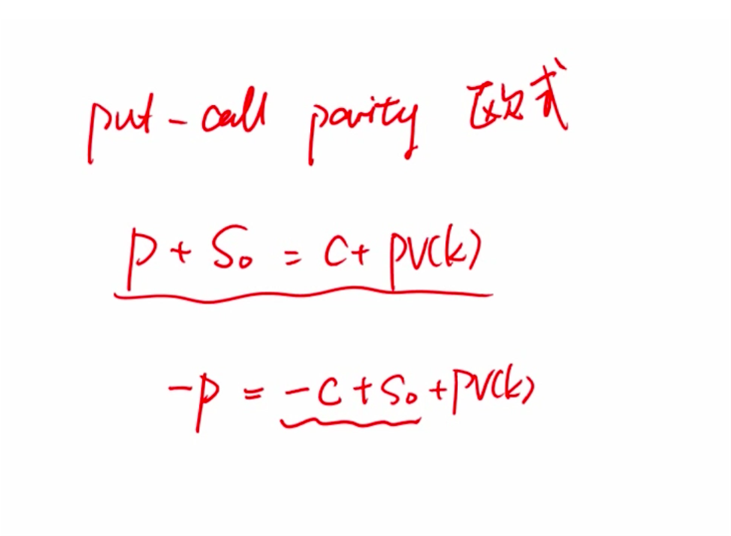 put-call parity 欧式
p + S₀ = c + PV(k)
-p = -c + S₀ + PV(k)